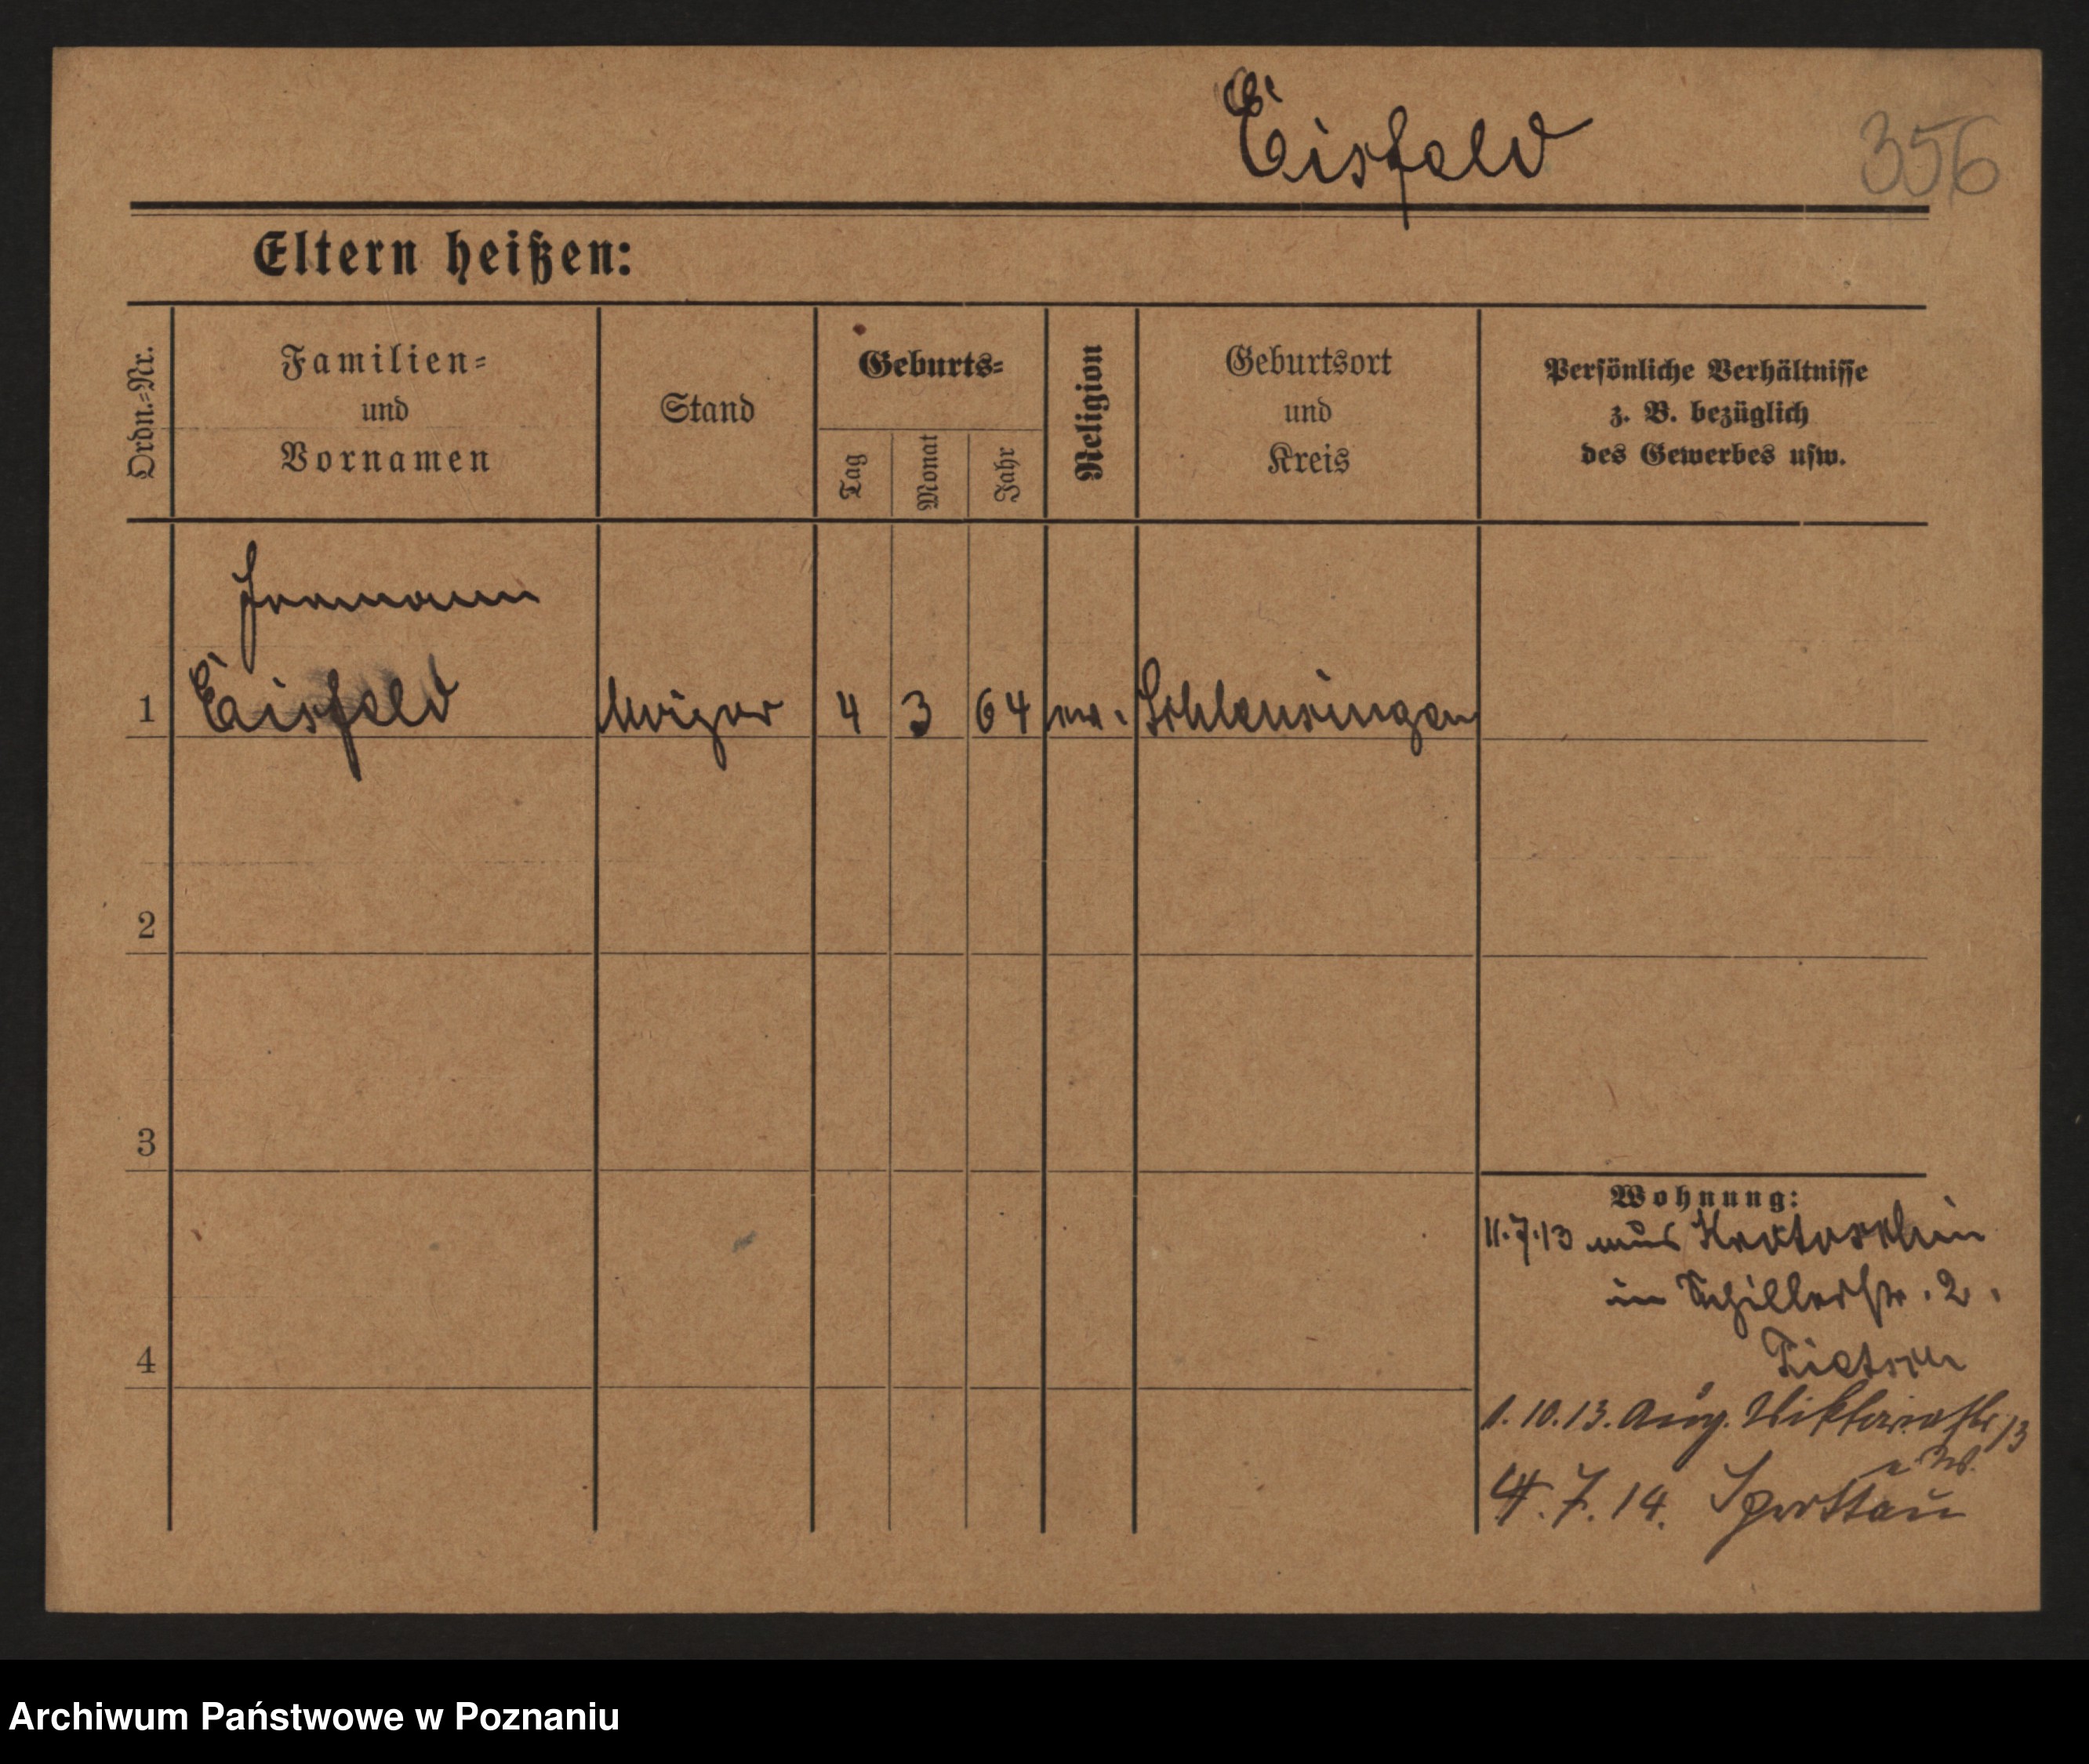 Eisfeld
356
Eltern heißen:
Ordn.-Nr.
Familien-
und
Vornamen
Stand
Geburts-
Tag
Monat
Jahr
Religion
Geburtsort
und
Kreis
Persönliche Verhältnisse
z. B. bezüglich
des Gewerbes usw.
Hermann
1 Eisfeld Heizer 4 3 64 ev. Schleusingen
2
3
4
Wohnung:
11.7.13 aus Krotoschin
in Schillerstr. 2.
1.10.13. Aug. Viktoriastr. 13
4.7.14. Sprottau
Archiwum Państwowe w Poznaniu